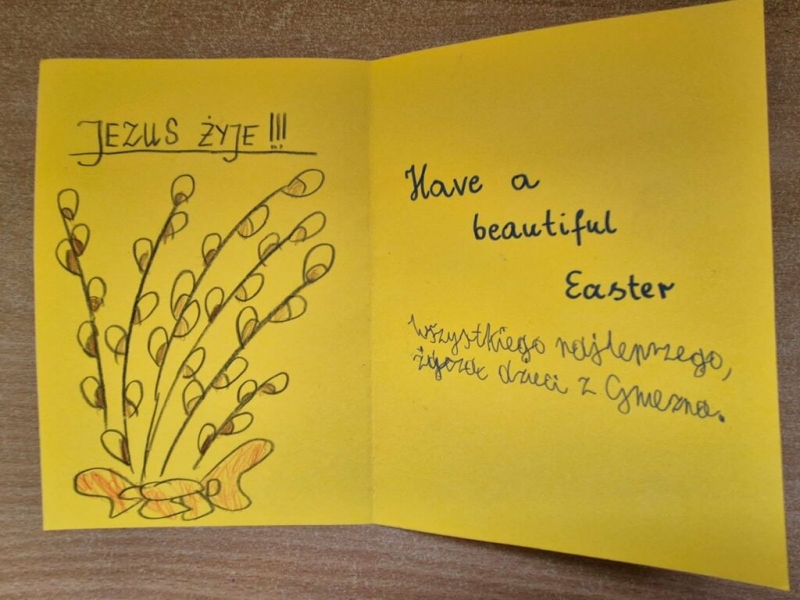 JEZUS ŻYJE!!!
Have a
beautiful
Easter
Wszystkiego najlepszego,
życzą dzieci z Gniezna.